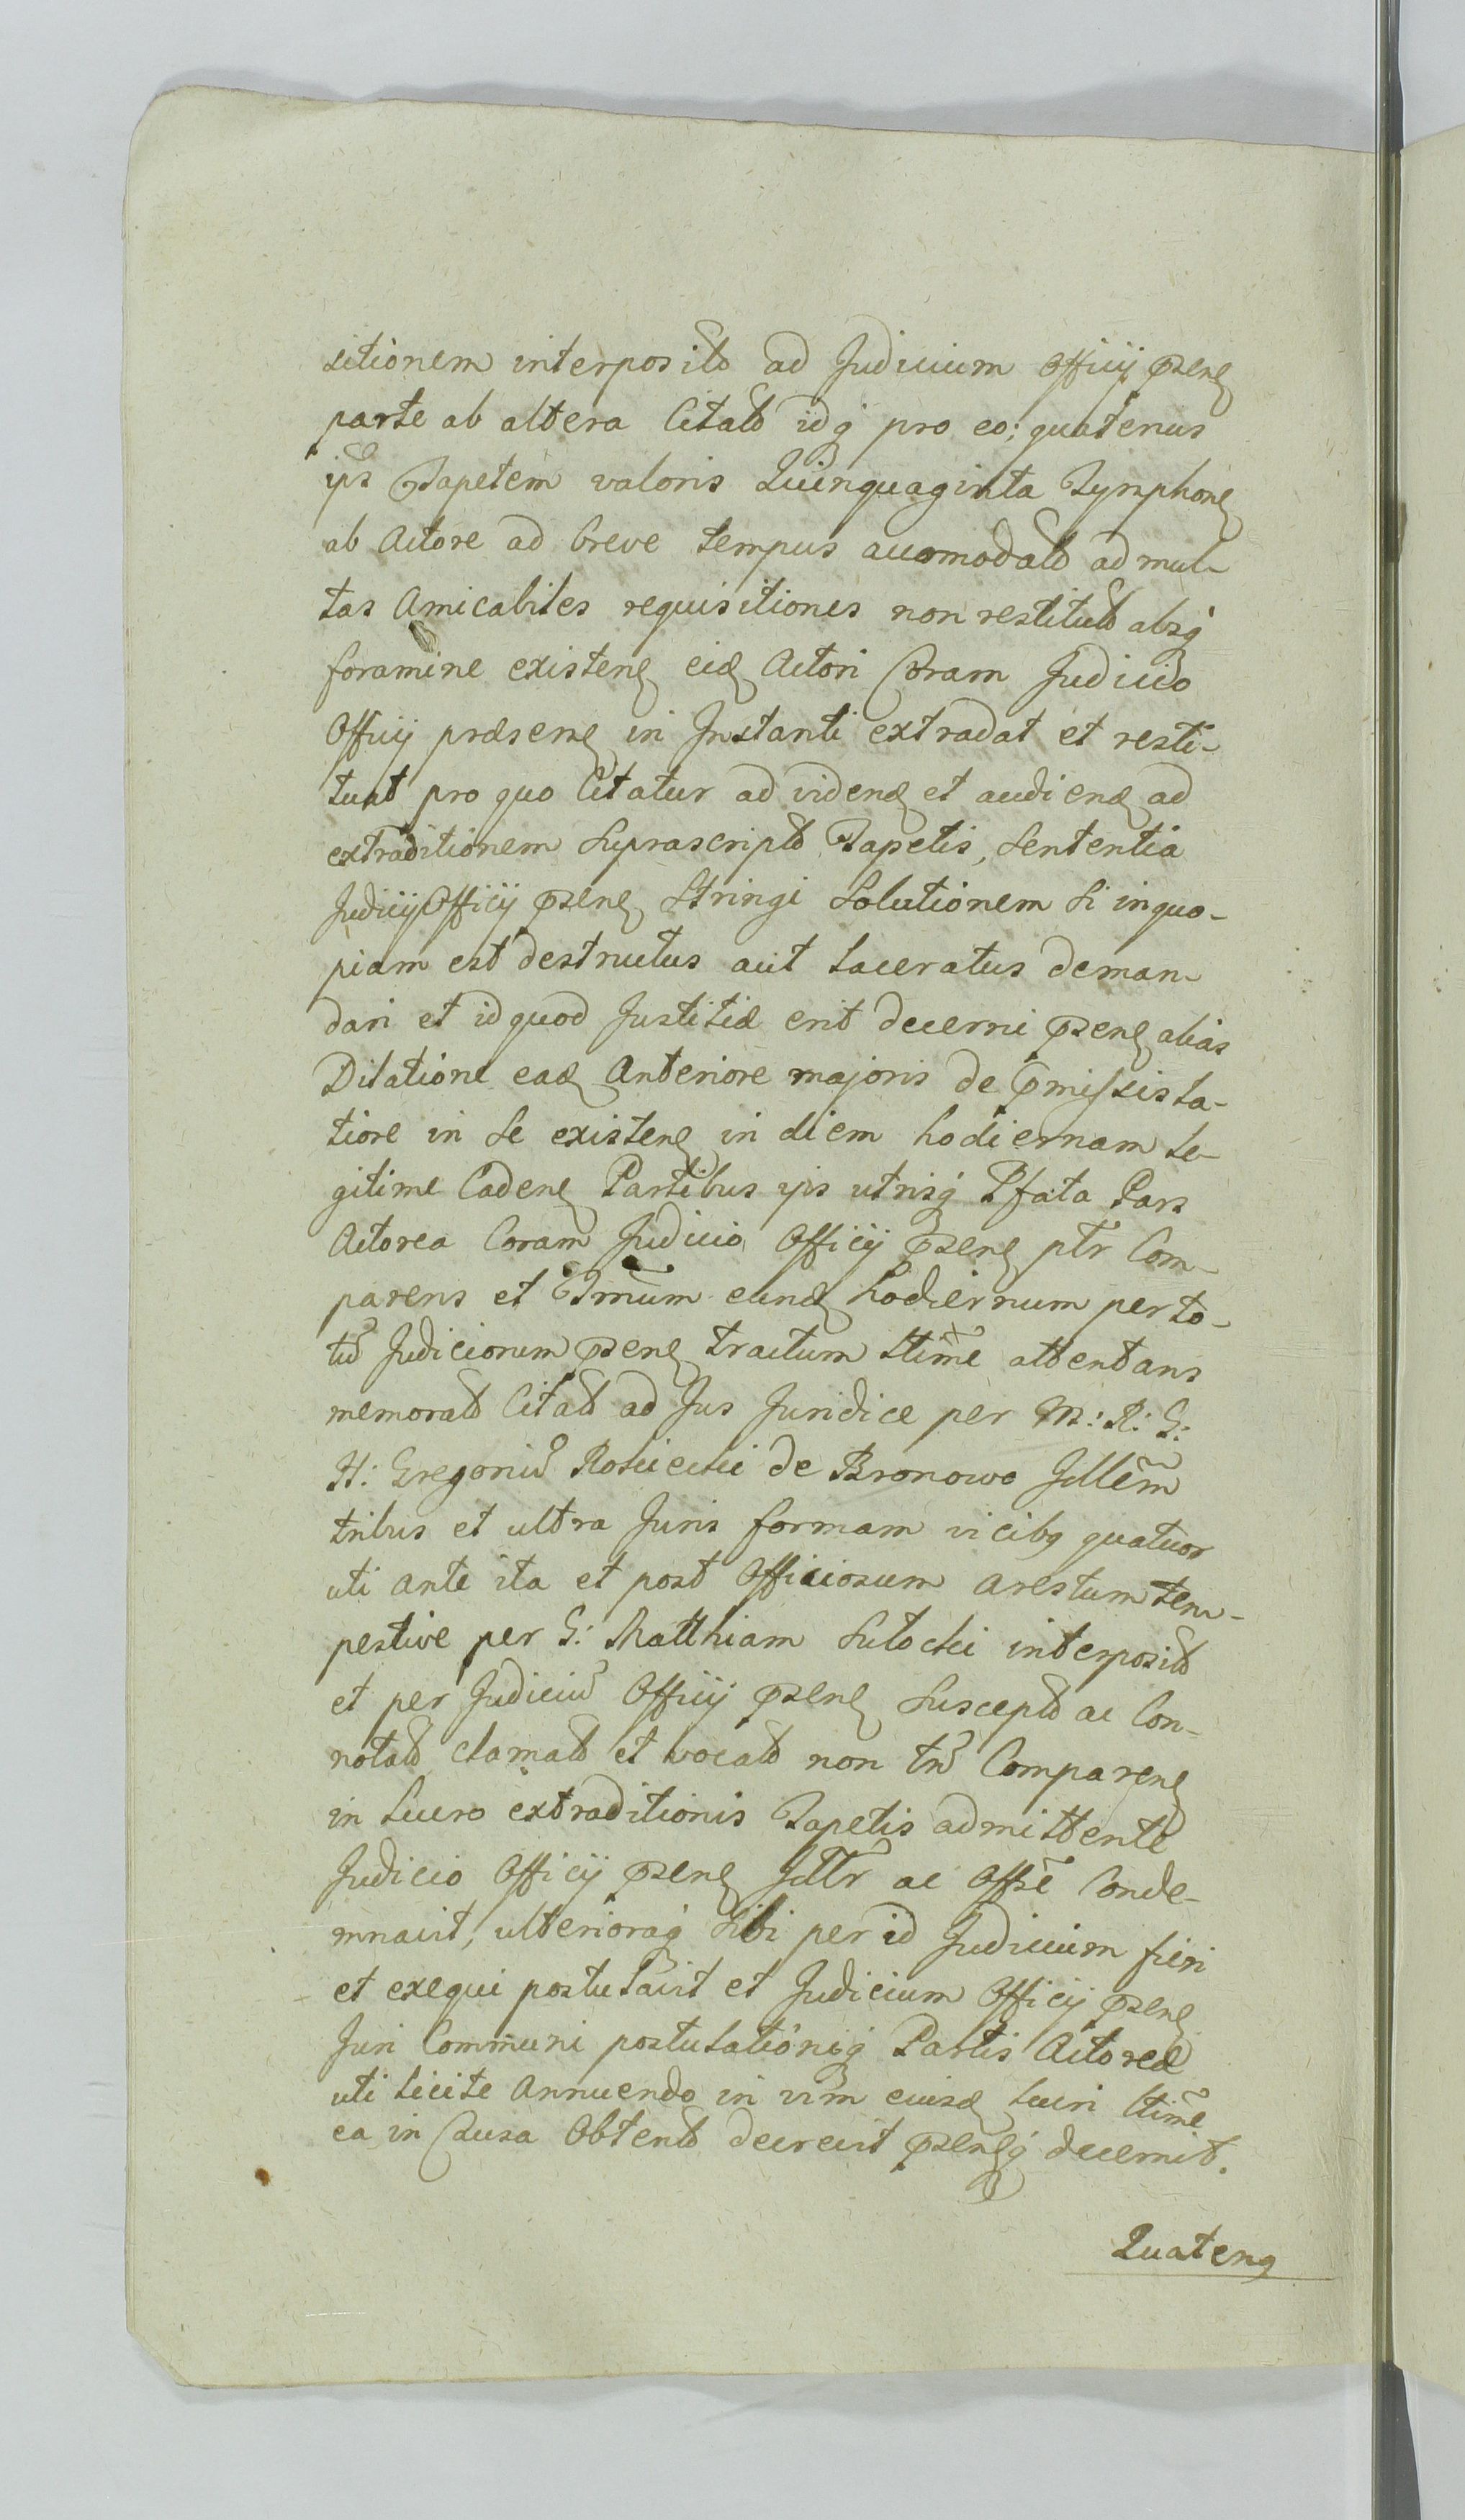 sitionem interposit ad Judicium Officij psens
parte ab altera Citat idq pro eo; quatenus
ips Tapetem valoris Quinquaginta Tymphon
ab Actore ad breve tempus accomodat ad mul-
tas Amicabiles requisitiones non restitut absq
foramine existen eid Actori Coram Judicio
Officij præsen in Instanti extradat et resti-
tuat pro quo Citatur ad viden et audien ad
extraditionem suprascript Tapetis, Sententia
Judicij Officij psen Stringi Solutionem Si inquo-
piam est destructus aut laceratus deman-
dari et idquod Justitiæ erit decerni psen alias
Dilatione ead Anteriore majoris de pmissis la-
tiore in Se existen in diem hodiernam le-
gitime Caden Partibus ijs utrisq Pfata Pars
Actorea Coram Judicio Officij psen ptr Com-
parens et Tmum eund hodiernum per to-
tu Judiciorum psen tractum ltime attentans
memorat Citat ad Jus Juridice per M: R: G:
H: Gregoriu Rosciecki de Bronowo Jllem
tribus et ultra Juris formam vicibq quatuor
uti ante ita et post Officiosum arestum tem-
pestive per G: Matthiam Sutocki interposit
et per Judiciu Officij psen Suscept ac Con-
notat clamat et vocat non tn Comparen
in lucro extraditionis Tapetis admittente
Judicio Officij psen Jdltr ac Offse Conde-
mnavit, ulterioraq Sibi per id Judicium fieri
et exequi postulavit et Judicium Officij psen
Juri Communi postulationiq Partis Actoreæ
uti licite Annuendo in vim eiusd lucri ltime
ea in Causa Obtent decrevit psenq decernit.
Quatenq